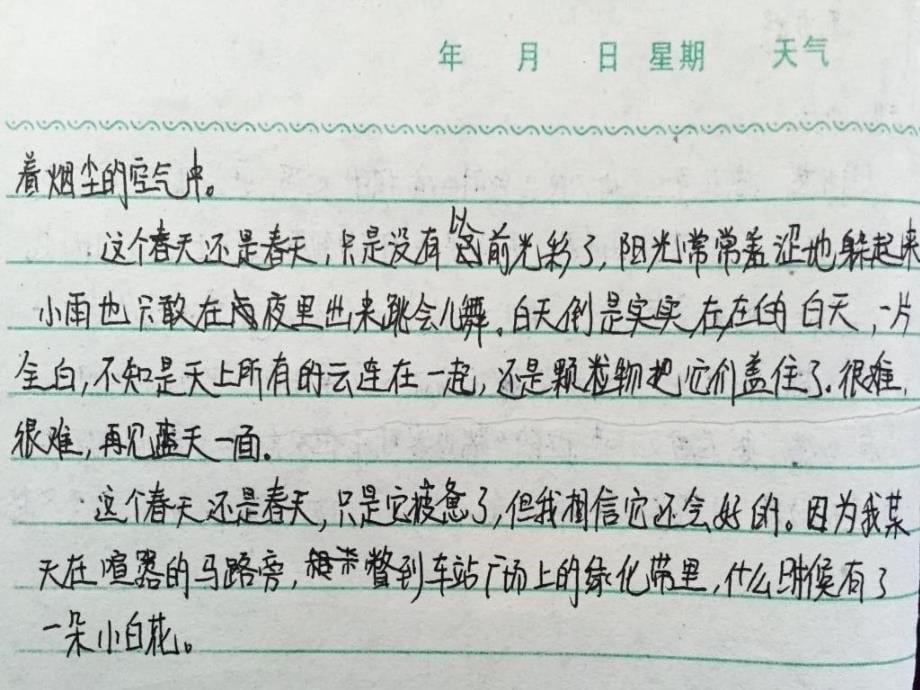 年 月 日 星期 天气
着烟尘的空气中。
这个春天还是春天，只是没有以前光彩了，阳光常常羞涩地躲起来
小雨也只敢在夜里出来跳会儿舞。白天倒是实实在在的白天，一片
全白，不知是天上所有的云连在一起，还是颗粒物把它们盖住了。很难，
很难，再见蓝天一面。
这个春天还是春天，只是它疲惫了，但我相信它还会好的。因为我某
天在喧嚣的马路旁，瞥到车站广场上的绿化带里，什么时候有了
一朵小白花。